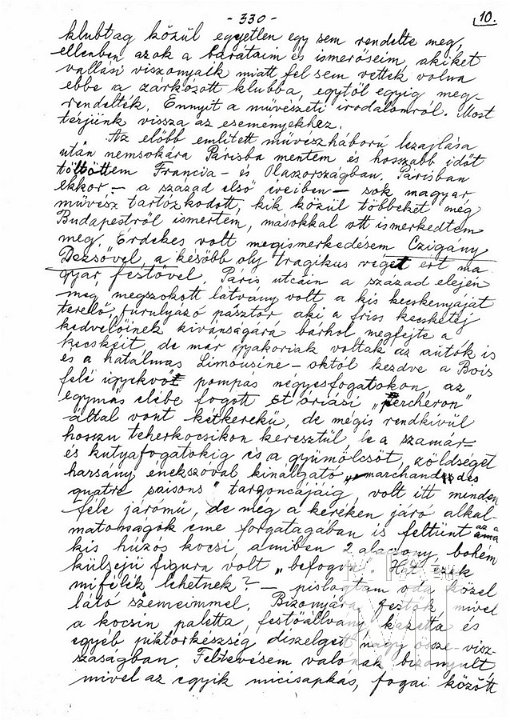 - 330 -
10.
klubtag közül egyetlen egy sem rendelte meg,
ellenben azok a barátaim és ismerőseim, akiket
vallási viszonyaik miatt fel sem vettek volna
ebbe a zárkózott klubba, egytől egyig meg-
rendelték. Ennyit a művészeti irodalomról. Most
térjünk vissza az eseményekhez.
Az előbb említett művészháború lezajlása
után nemsokára Párisba mentem és hosszabb időt
töltöttem Francia- és Olaszországban. Párisban
ekkor - a század első éveiben - sok magyar
művész tartózkodott, kik közül többeket még
Budapestről ismertem, másokkal ott ismerkedtem
meg. Érdekes volt megismerkedésem Czigány
Dezsővel, a később oly tragikus véget ért ma-
gyar festővel. Páris utcáin a század elején
még megszokott látvány volt, a kis kecskenyáját
terelő, furulyázó pásztor aki a friss kecsketej
kedvelőinek kívánságára bárhol megfejte a
kecskéit, de már gyakoriak voltak az autók is
és a hatalmas Limousine-októl kezdve a Bois
felé igyekvő pompás négyesfogatokon, az
egymás elébe fogott öt óriási „percheron"
által vont kétkerekű, de mégis rendkívül
hosszu teherkocsikon keresztül, le a szamár-
és kutyafogatokig és a gyümölcsöt, zöldséget
harsány énekszóval kínálgató „marchand des
quatre saisons" targoncájáig, volt itt minden
féle jármű, de még a keréken járó alkal
matosságok eme forgatagában is feltünt az a
kis húzós kocsi, amiben 2 alacsony, bohém
külsejű figura volt „befogva". Hát ezek
mifélék lehetnek? - pislogtam oda közel
látó szemeimmel. Bizonyára festők, mivel
a kocsin paletta, festőállvány kazetta és
egyéb piktorkészség díszelgett nagy össze-visz-
szaságban. Feltevésem valónak bizonyult
mivel az egyik micisapkás, fogai között